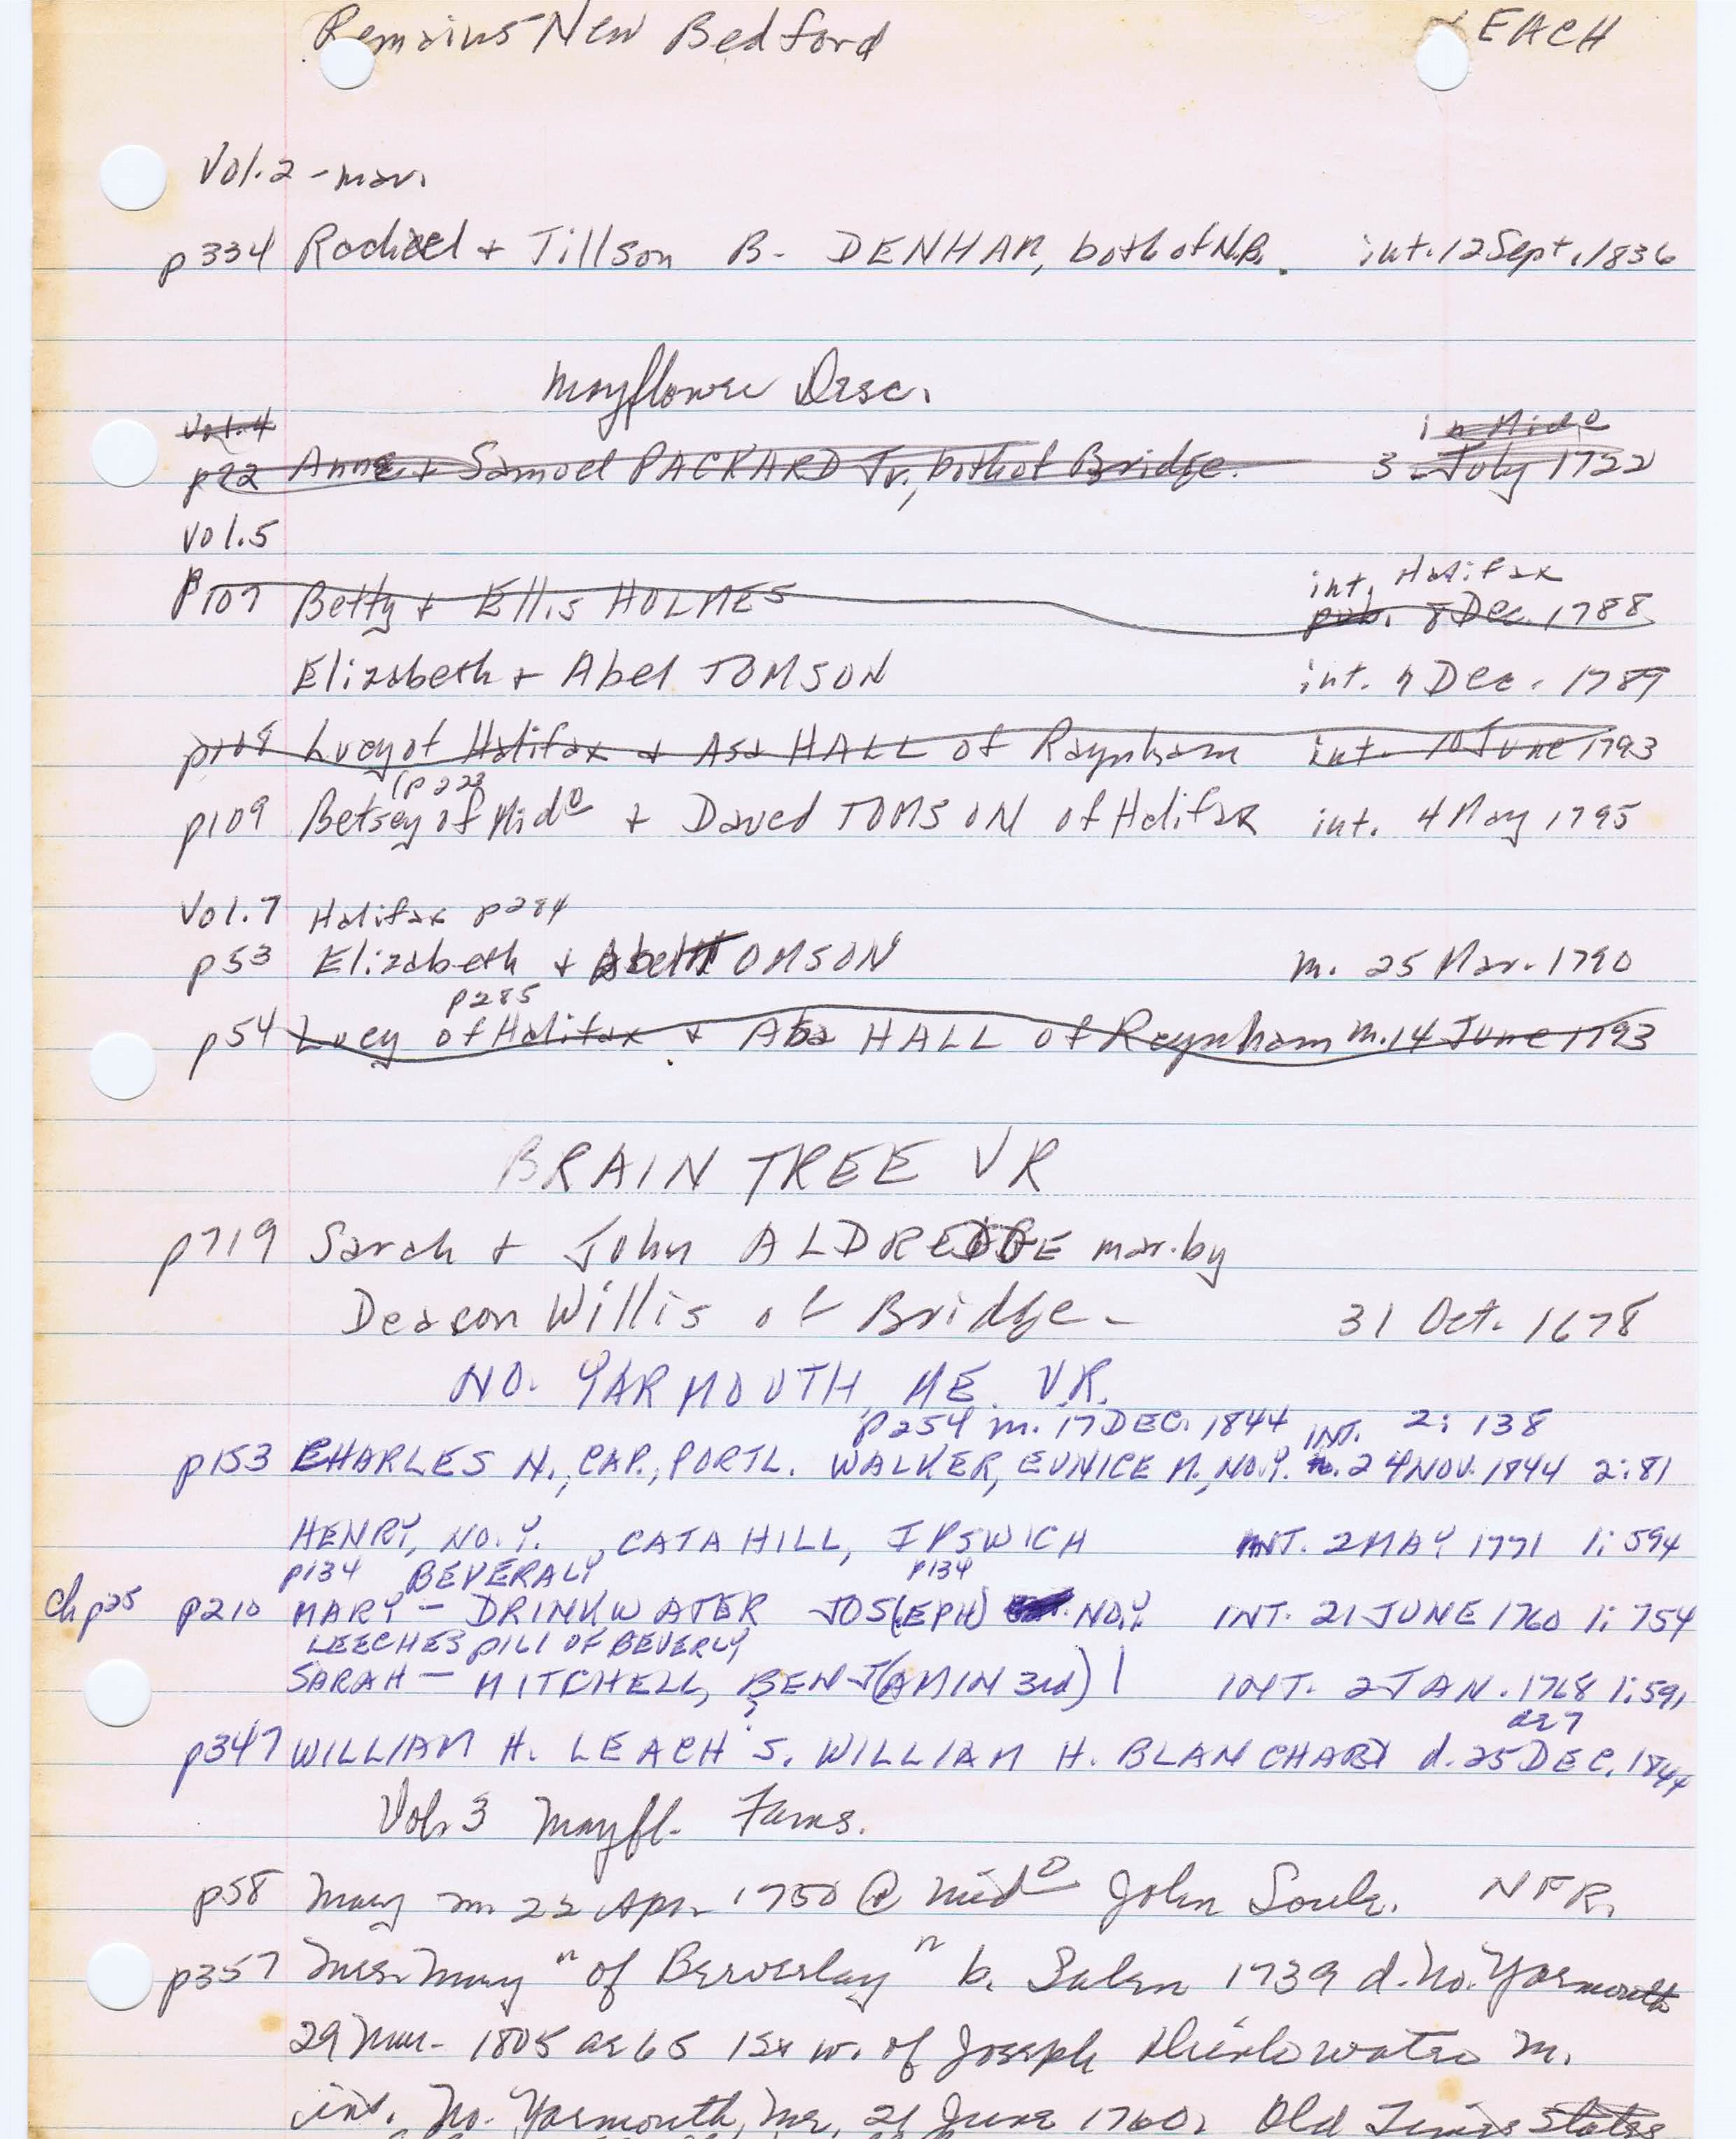 Remains New Bedford EACH
Vol. 2 - mar.
p334 Rachael + Tillson B. DENHAM, both of N.B. int. 12 Sept. 1836
Mayflower Desc.
Vol. 4 in Mido
p22 Anne + Samuel PACKARD Jr., both of Bridge. 3 July 1722
Vol. 5
int. Halifax
p107 Betty + Ellis HOLMES pub. 8 Dec. 1788
Elizabeth + Abel TOMSON int. 7 Dec. 1789
p108 Lucy of Halifax + Asa HALL of Raynham int. 10 June 1793
(p223
p109 Betsey of Mido + Daved TOMSON of Halifax int. 4 May 1795
Vol. 7 Halifax p284
p53 Elizabeth + Abel TOMSON m. 25 Mar. 1790
p285
p54 Lucy of Halifax + Asa HALL of Raynham m. 14 June 1793
BRAINTREE VR
p719 Sarah + John ALDREDGE mar. by
Deacon Willis of Bridge - 31 Oct. 1678
NO. YARMOUTH, ME. V.R.
p254 m. 17 DEC. 1844 INT. 2: 138
p153 CHARLES N., CAP., PORTL. WALKER, EUNICE M., NO.Y. 24 NOV. 1844 2:81
HENRY, NO. Y. , CATA HILL, IPSWICH INT. 2 MAY 1771 1: 594
p134 BEVERALY p134
ch p25 p210 MARY - DRINKWATER JOS(EPH) NO.Y. INT. 21 JUNE 1760 1: 754
LEECHES p161 OF BEVERLY
SARAH - MITCHELL, BENJ(AMIN 3rd) INT. 2 JAN. 1768 1:591
ae 7
p347 WILLIAM H. LEACH S. WILLIAM H. BLANCHARD d. 25 DEC. 1844
Vol. 3 Mayfl. Fams.
p58 Mary m. 22 Apr. 1750 @ Mido John Soule. NFR.
p357 Mrs. Mary "of Berverlay" b. Salem 1739 d. No. Yarmouth
29 Mar. 1805 ae 65 1st w. of Joseph Drinkwater m.
int. No. Yarmouth, Me, 21 June 1760, Old Times States